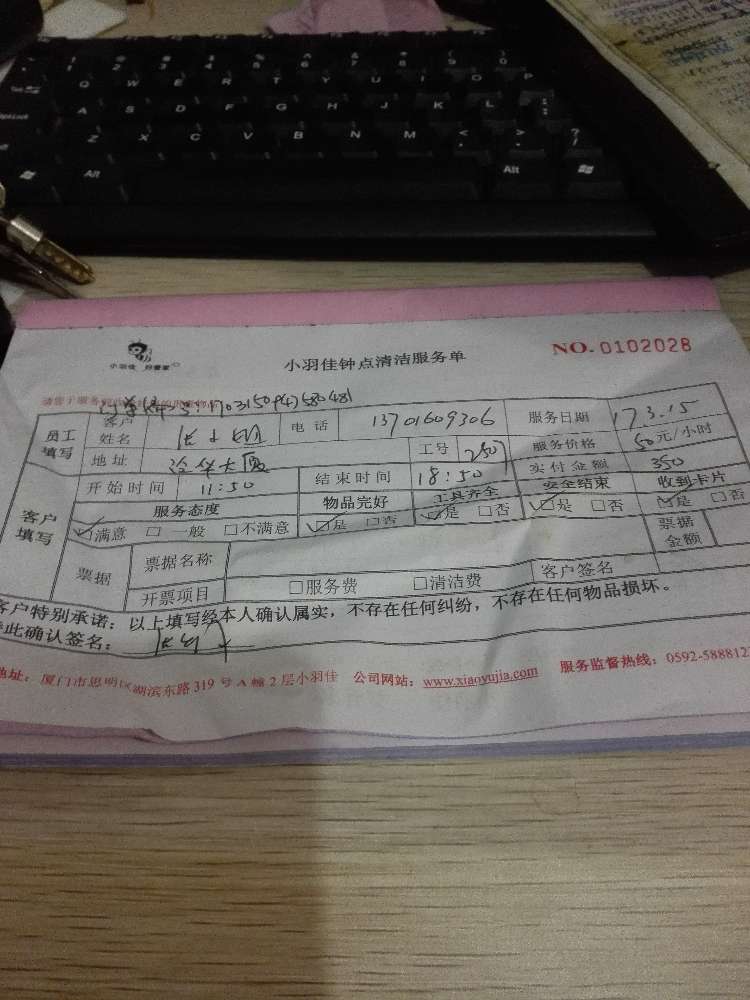 小羽佳 好管家
小羽佳钟点清洁服务单
NO. 0102028
员工填写
客户姓名
电话 13701609306
服务日期 17.3.15
地址
工号 2507
服务价格 50元/小时
开始时间 11:50
结束时间 18:50
实付金额 350
客户填写
服务态度 物品完好 工具齐全 安全结束 收到卡片
☑满意 □一般 □不满意 ☑是 □否 ☑是 □否 ☑是 □否 ☑是 □否
票据
票据名称
票据金额
开票项目 □服务费 □清洁费 客户签名
客户特别承诺：以上填写经本人确认属实，不存在任何纠纷，不存在任何物品损坏。
此确认签名：
地址：厦门市思明区湖滨东路319号A幢2层小羽佳 公司网站：www.xiaoyujia.com 服务监督热线：0592-588812